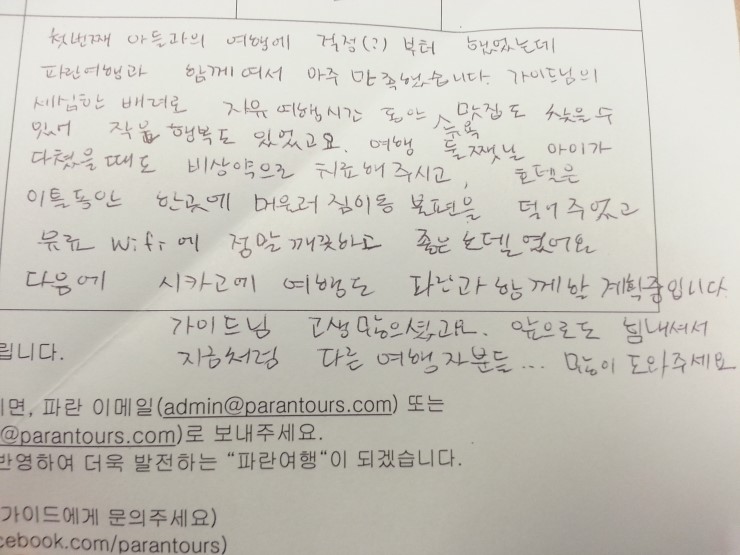 첫번째 아들과의 여행에 걱정(?)부터 했었는데
파란여행과 함께여서 아주 만족했습니다. 가이드님의
세심한 배려로 자유여행시간 동안 뉴욕 맛집도 찾을 수
있어 작은 행복도 있었고요. 여행 둘쨋날 아이가
다쳤을때도 비상약으로 치료해 주시고, 호텔은
이틀동안 한곳에 머물러 짐이동 불편을 덜어주었고
무료 Wifi에 정말 깨끗하고 좋은 호텔였어요
다음에 시카고에 여행도 파란과 함께할 계획중입니다.
가이드님 고생 많으셨고요. 앞으로도 힘내셔서
립니다. 지금처럼 다른 여행자분들... 많이 도와주세요
면, 파란 이메일(admin@parantours.com) 또는
@parantours.com)로 보내주세요.
반영하여 더욱 발전하는 “파란여행”이 되겠습니다.
가이드에게 문의주세요)
cebook.com/parantours)